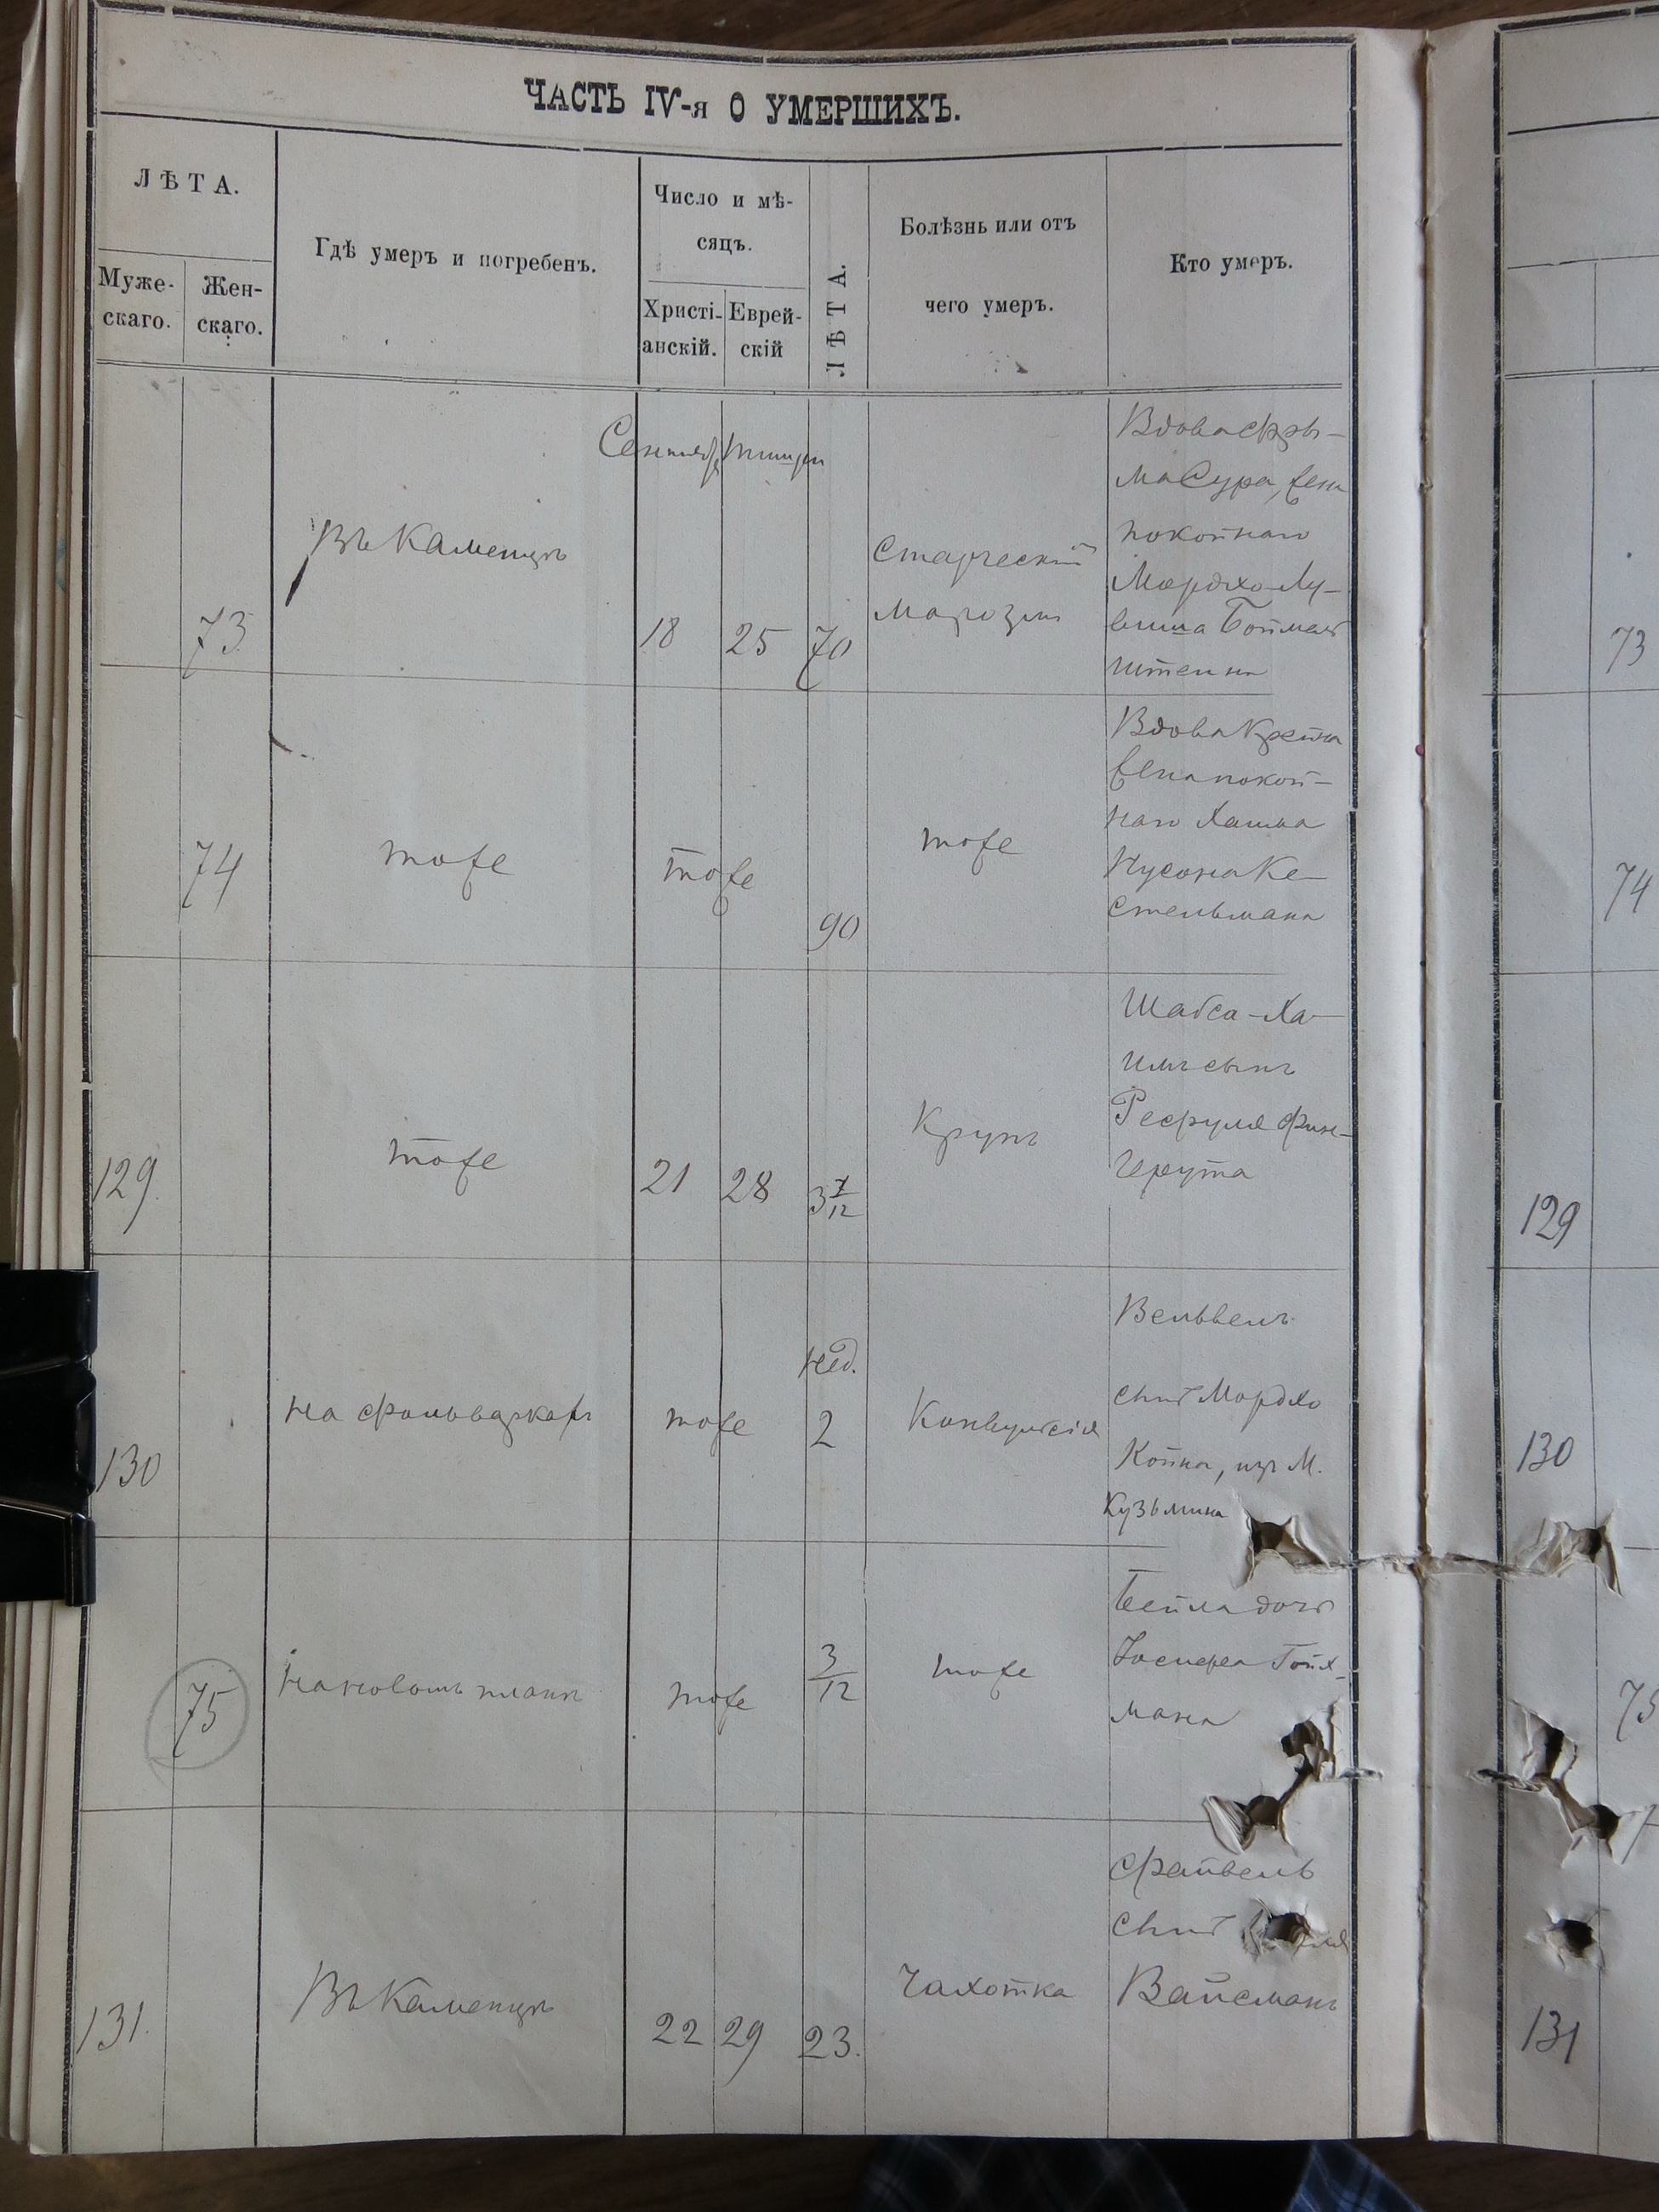 ЧАСТЬ IV-я О УМЕРШИХЪ.
ЛѢТА.
Муже-
скаго.
Жен-
скаго.
Гдѣ умеръ и погребенъ.
Число и мѣ-
сяцъ.
Христі-
анскій.
Еврей-
скій
ЛѢТА.
Болѣзнь или отъ
чего умеръ.
Кто умеръ.
Сентябр Тишри
73
Въ Каменцѣ
18
25
70
Старческій
маразм
Вдова Фры-
ма Сура, жена
покойнаго
Мордхо-Лу-
виша
штейна
73
74
тоже
тоже
90
тоже
Вдова Крейна
жена покой-
наго Хаима
Нусона Ке-
стельмана
74
129.
тоже
21
28
3 7/12
Крупъ
Шабса-Ха-
имъ сынъ
Рефуля Фин-
герута
129
130
на фольваркахъ
тоже
нед.
2
Конвульсія
Вельвелъ
сынъ Мордхо
Койна, изъ м.
Кузьмина
130
75
на новомъ планѣ
тоже
3/12
тоже
Бейла дочь
Иосифа Гойх-
мана
75
131.
Въ Каменцѣ
22
29
23.
Чахотка
Файвель
сынъ
Вайсманъ
131